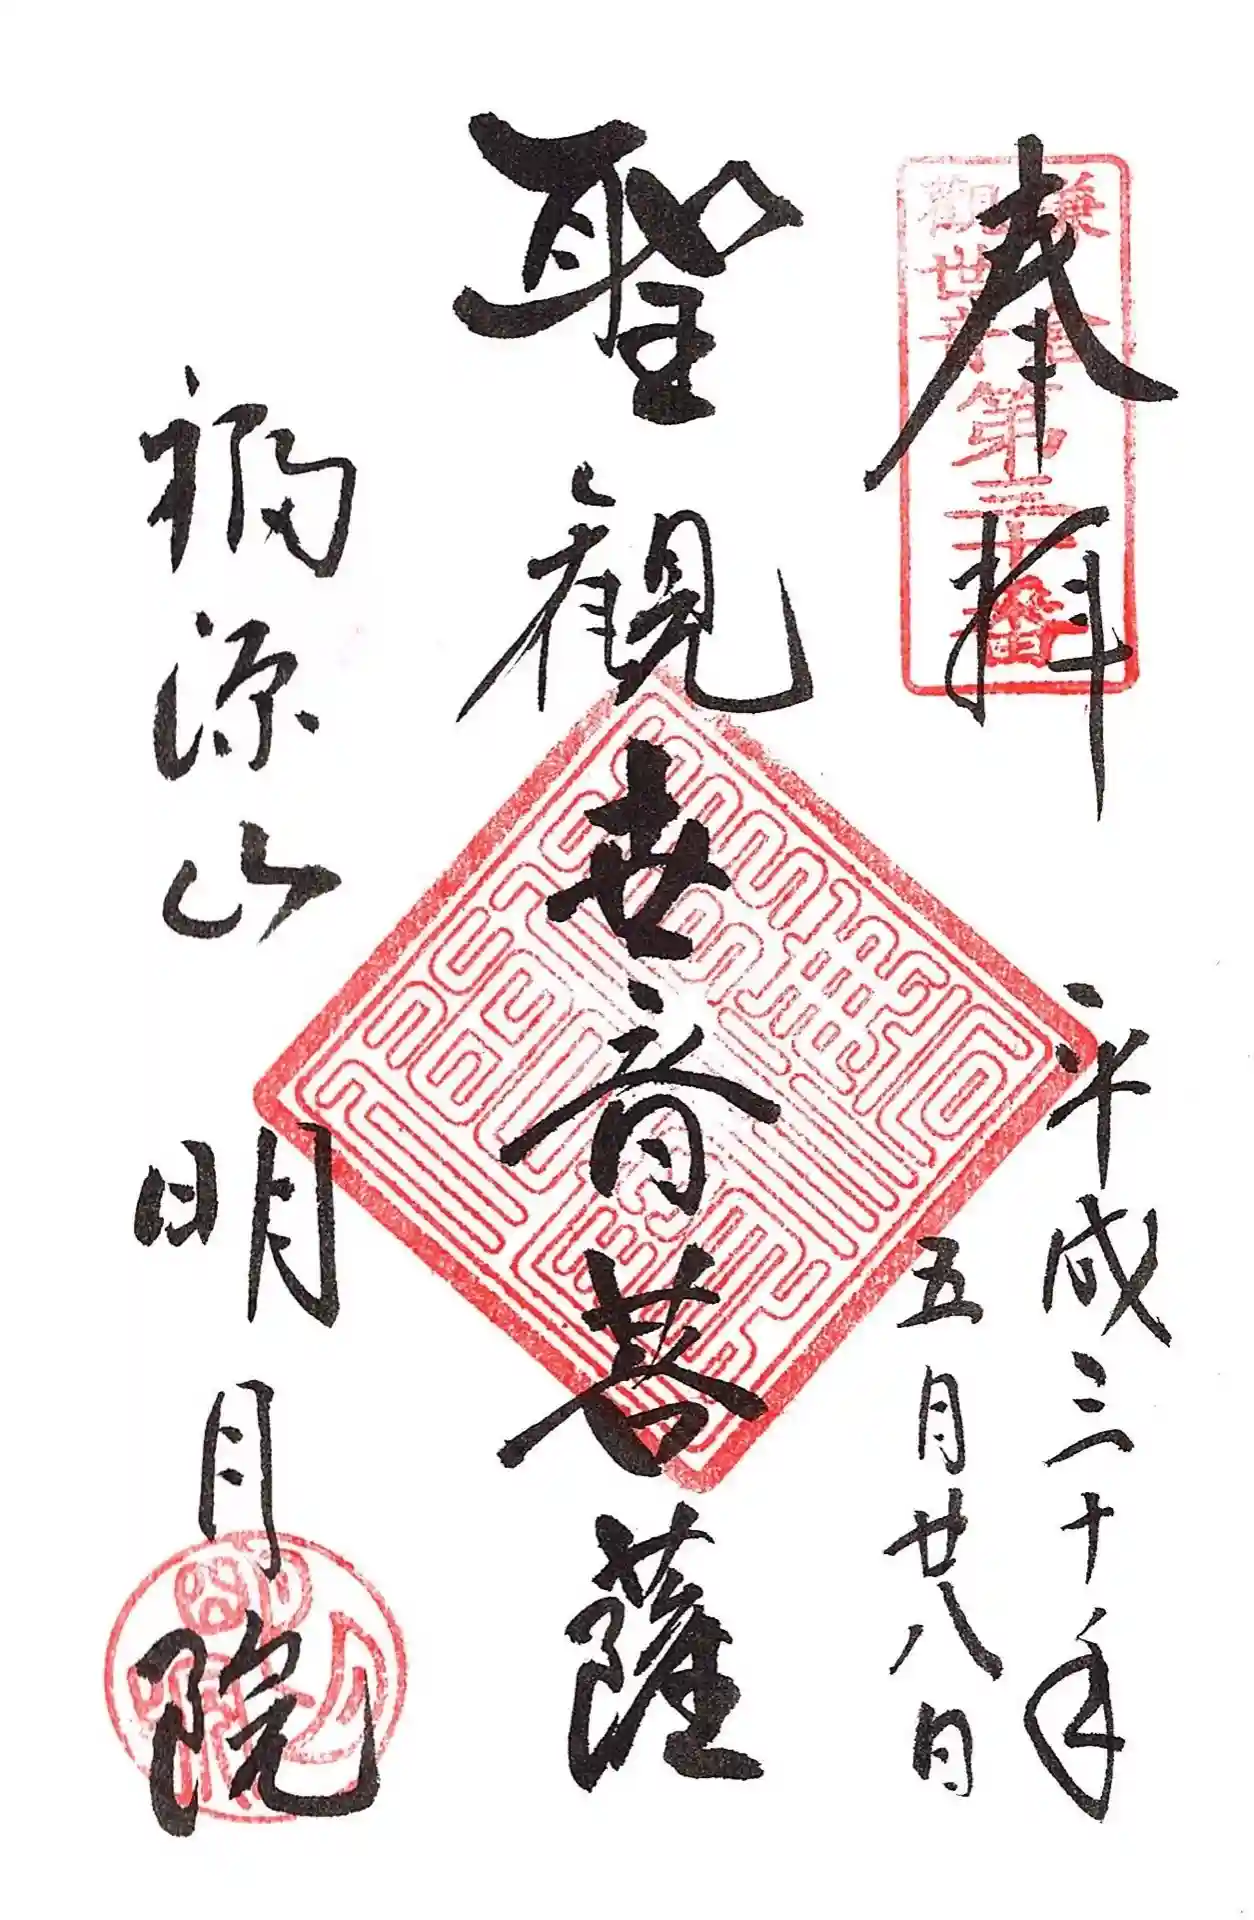 奉拝
鎌倉
観世音
第三十番
平成三十年
五月廿八日
聖観世音菩薩
福源山
明月院